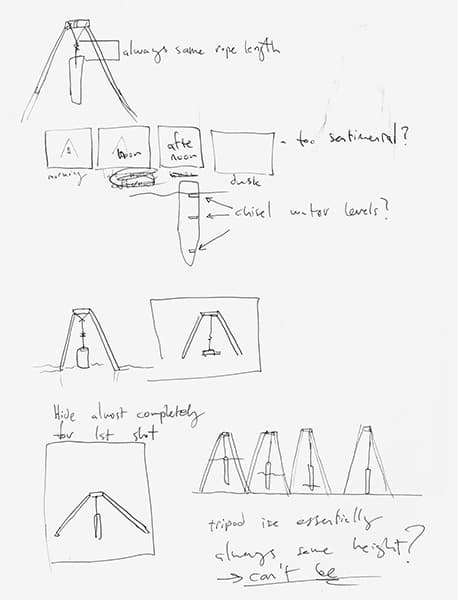 always same rope length
noon
afte
noon
- too sentimental?
morning
dusk
chisel water levels?
Hide almost completely
for 1st shot
tripod is essentially
always same height?
→ can't be